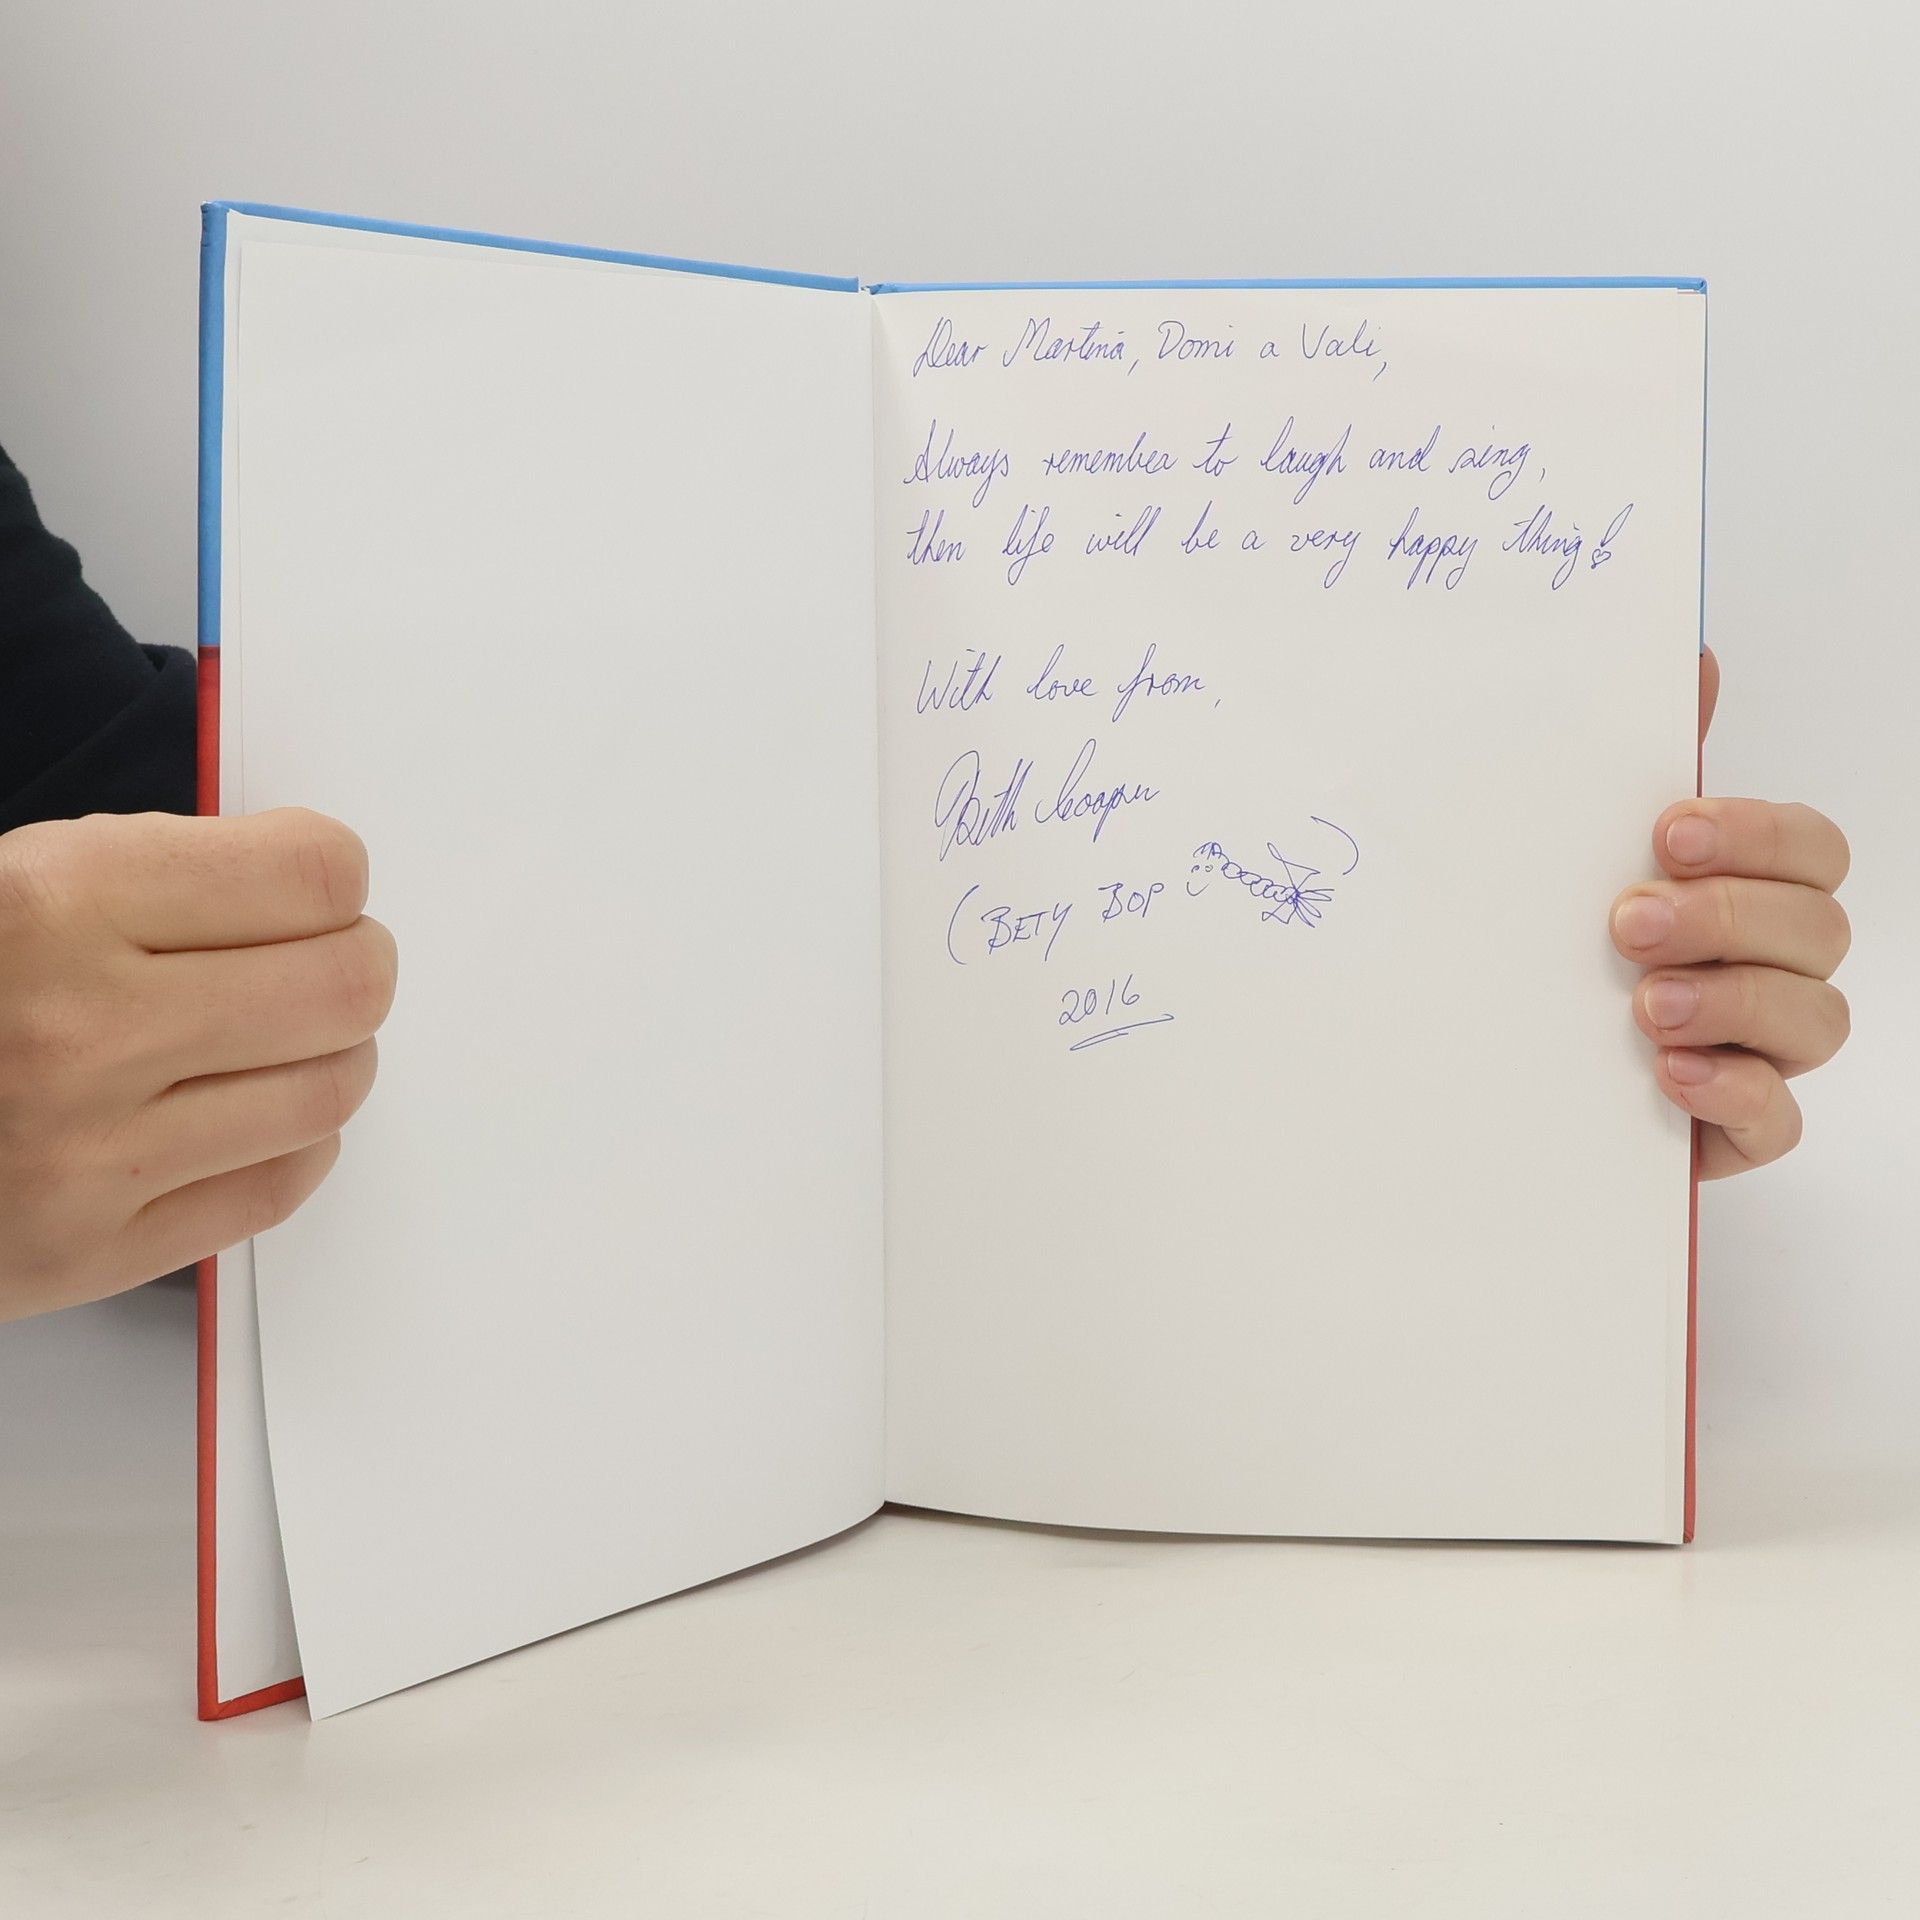 Dear Martina, Domi a Vali,
Always remember to laugh and sing,
then life will be a very happy thing!
With love from,
Beth Cooper
(BETY BOP
2016